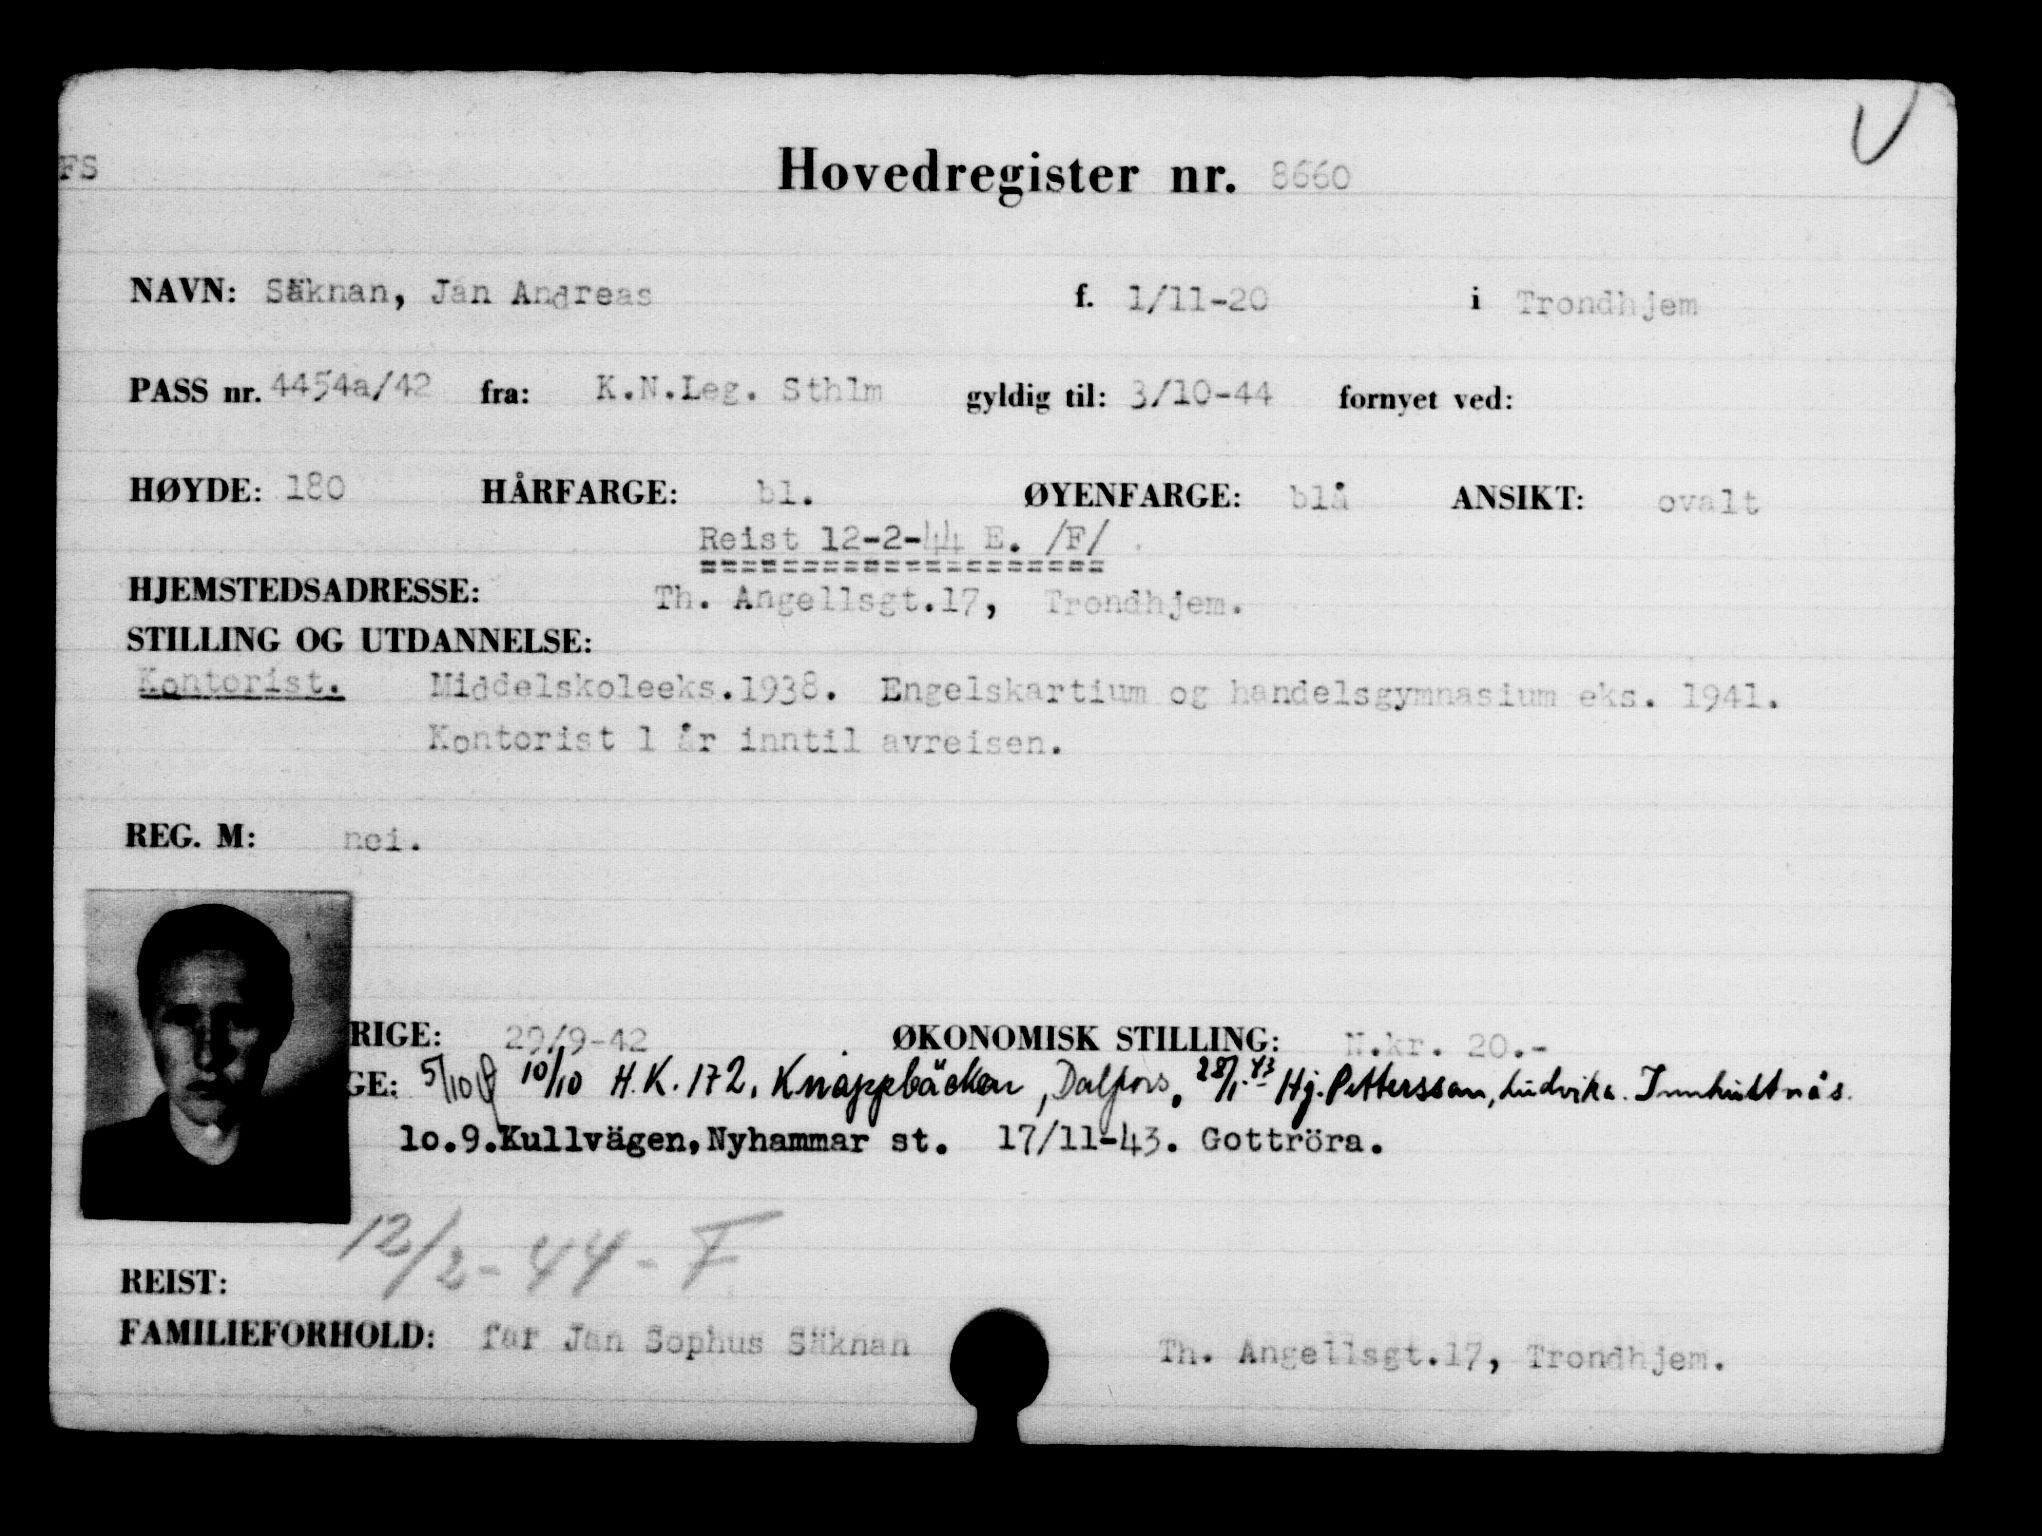 FS
Hovedregister nr. 8660
NAVN: Säknan, Jan Andreas f. 1/11-20 i Trondhjem
PASS nr. 4454a/42 fra: K.N.Leg. Sthlm gyldig til: 3/10-44 fornyet ved:
HØYDE: 180 HÅRFARGE: bl. ØYENFARGE: blå ANSIKT: ovalt
Reist 12-2-44 E. /F/
HJEMSTEDSADRESSE: Th. Angellsgt.17, Trondhjem.
STILLING OG UTDANNELSE:
Kontorist. Middelskoleeks.1938. Engelskartium og handelsgymnasium eks. 1941.
Kontorist 1 år inntil avreisen.
REG. M: nei.
RIGE: 29/9-42 ØKONOMISK STILLING: N.kr. 20.-
GE: 5/10 10/10 H.K. 172, Knappbäcken, Dalfors, 28/1-43 Hj. Pettersson, Ludvika.
lo.9.Kullvägen,Nyhammar st. 17/11-43. Gottröra.
12/2-44-F
REIST:
FAMILIEFORHOLD: far Jan Sophus Säknan Th. Angellsgt.17, Trondhjem.